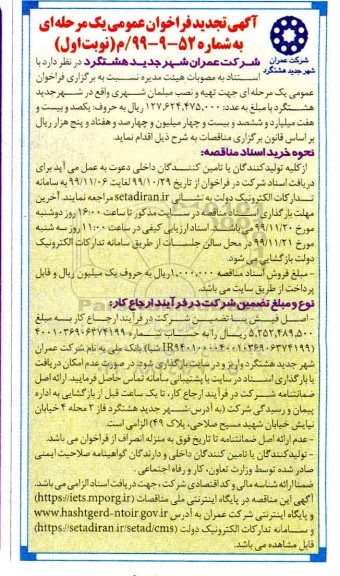 آگهی تجدید فراخوان عمومی یک مرحله ای
به شماره ۵۲-۹-۹۹/م (نوبت اول)
شرکت عمران
شهر جدید هشتگرد
شرکت عمران شهر جدید هشتگرد در نظر دارد با
استناد به مصوبات هیئت مدیره نسبت به برگزاری فراخوان
عمومی یک مرحله ای جهت تهیه و نصب مبلمان شهری واقع در شهر جدید
هشتگرد با مبلغ به عدد: ۱۲۷,۶۲۴,۴۷۵,۰۰۰ ریال به حروف: یکصد و بیست و
هفت میلیارد و ششصد و بیست و چهار میلیون و چهارصد و هفتاد و پنج هزار ریال
بر اساس قانون برگزاری مناقصات به شرح ذیل اقدام نماید.
نحوه خرید اسناد مناقصه:
از کلیه تولیدکنندگان یا تامین کنندگان داخلی دعوت به عمل می آید برای
دریافت اسناد شرکت در فراخوان از تاریخ ۹۹/۱۰/۲۹ لغایت ۹۹/۱۱/۰۶ به سامانه
تدارکات الکترونیک دولت به نشانی setadiran.ir مراجعه نمایند. آخرین
مهلت بارگذاری اسناد مناقصه در سایت مذکور تا ساعت ۱۶:۰۰ روز دوشنبه
مورخ ۹۹/۱۱/۲۰ می باشد. اسناد ارزیابی کیفی در ساعت ۱۱:۰۰ روز سه شنبه
مورخ ۹۹/۱۱/۲۱ در محل سالن جلسات از طریق سامانه تدارکات الکترونیک
دولت بازگشایی می شود.
- مبلغ فروش اسناد مناقصه ۱,۰۰۰,۰۰۰ ریال به حروف یک میلیون ریال و قابل
پرداخت از طریق سایت می باشد.
نوع و مبلغ تضمین شرکت در فرآیند ارجاع کار:
- اصل فیش یا تضمین شرکت در فرآیند ارجاع کار به مبلغ
۵,۲۵۲,۴۸۹,۵۰۰ ریال را به حساب شماره
شبا) بانک ملی به نام شرکت عمران
شهر جدید هشتگرد واریز و در سایت بارگذاری شود. در صورت عدم امکان دریافت
یا بارگذاری اسناد در سایت با پشتیبانی سامانه تماس حاصل فرمایید. ارائه اصل
ضمانتنامه شرکت در فرآیند ارجاع کار، تا یک ساعت قبل از بازگشایی به اداره
پیمان و رسیدگی شرکت (به آدرس: شهر جدید هشتگرد فاز ۲ محله ۴ خیابان
نیایش خیابان شهید مسیح صلاحی، پلاک ۴۹) الزامی است.
- عدم ارائه اصل ضمانتنامه تا تاریخ فوق به منزله انصراف از فراخوان می باشد.
- تولیدکنندگان یا تامین کنندگان داخلی و دارندگان گواهینامه صلاحیت ایمنی
صادر شده توسط وزارت تعاون، کار و رفاه اجتماعی.
ضمنا ارائه شناسه مالی و کد اقتصادی شرکت، جهت دریافت اسناد الزامی می باشد.
آگهی این مناقصه در پایگاه اینترنتی ملی مناقصات (https://iets.mporg.ir)
و پایگاه اینترنتی شرکت عمران به آدرس www.hashtgerd-ntoir.gov.ir
و سامانه تدارکات الکترونیک دولت (https://setadiran.ir/setad/cms)
قابل مشاهده می باشد.